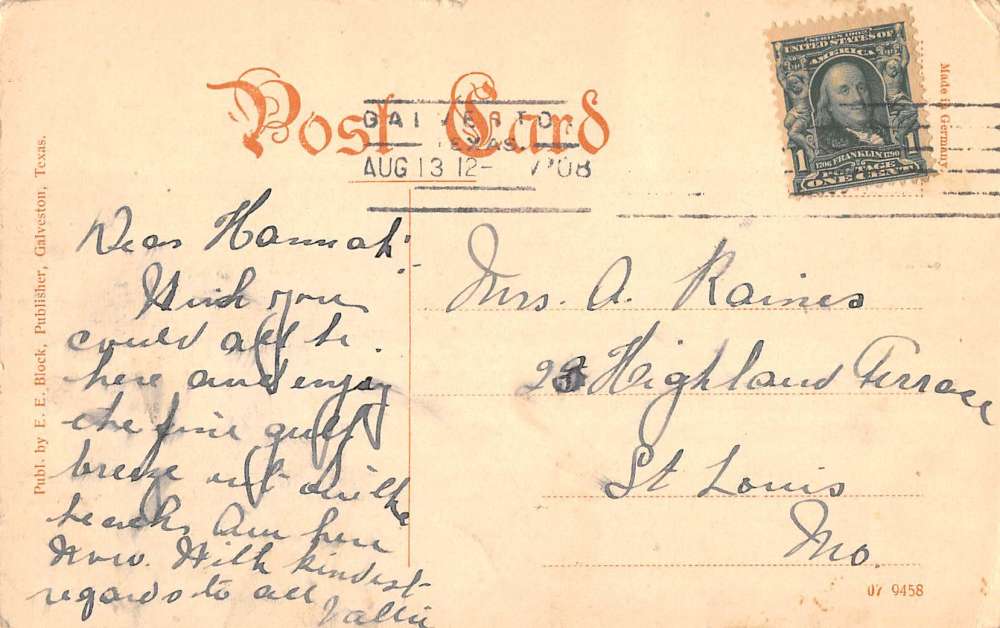 Post Card
GALVESTON,
TEXAS.
AUG 13 12- 1908
SERIES 1902
UNITED STATES OF
AMERICA
1706 FRANKLIN 1790
POSTAGE
1 ONE CENT
Made in Germany
Publ. by E. E. Block, Publisher, Galveston, Texas.
Dear Hannah:
Wish you
could all be
here and enjoy
the fine gulf
breeze
Am here
now. With kindest
regards to all
Mrs. A. Raines
Highland Terrace
St Louis
Mo.
07 9458